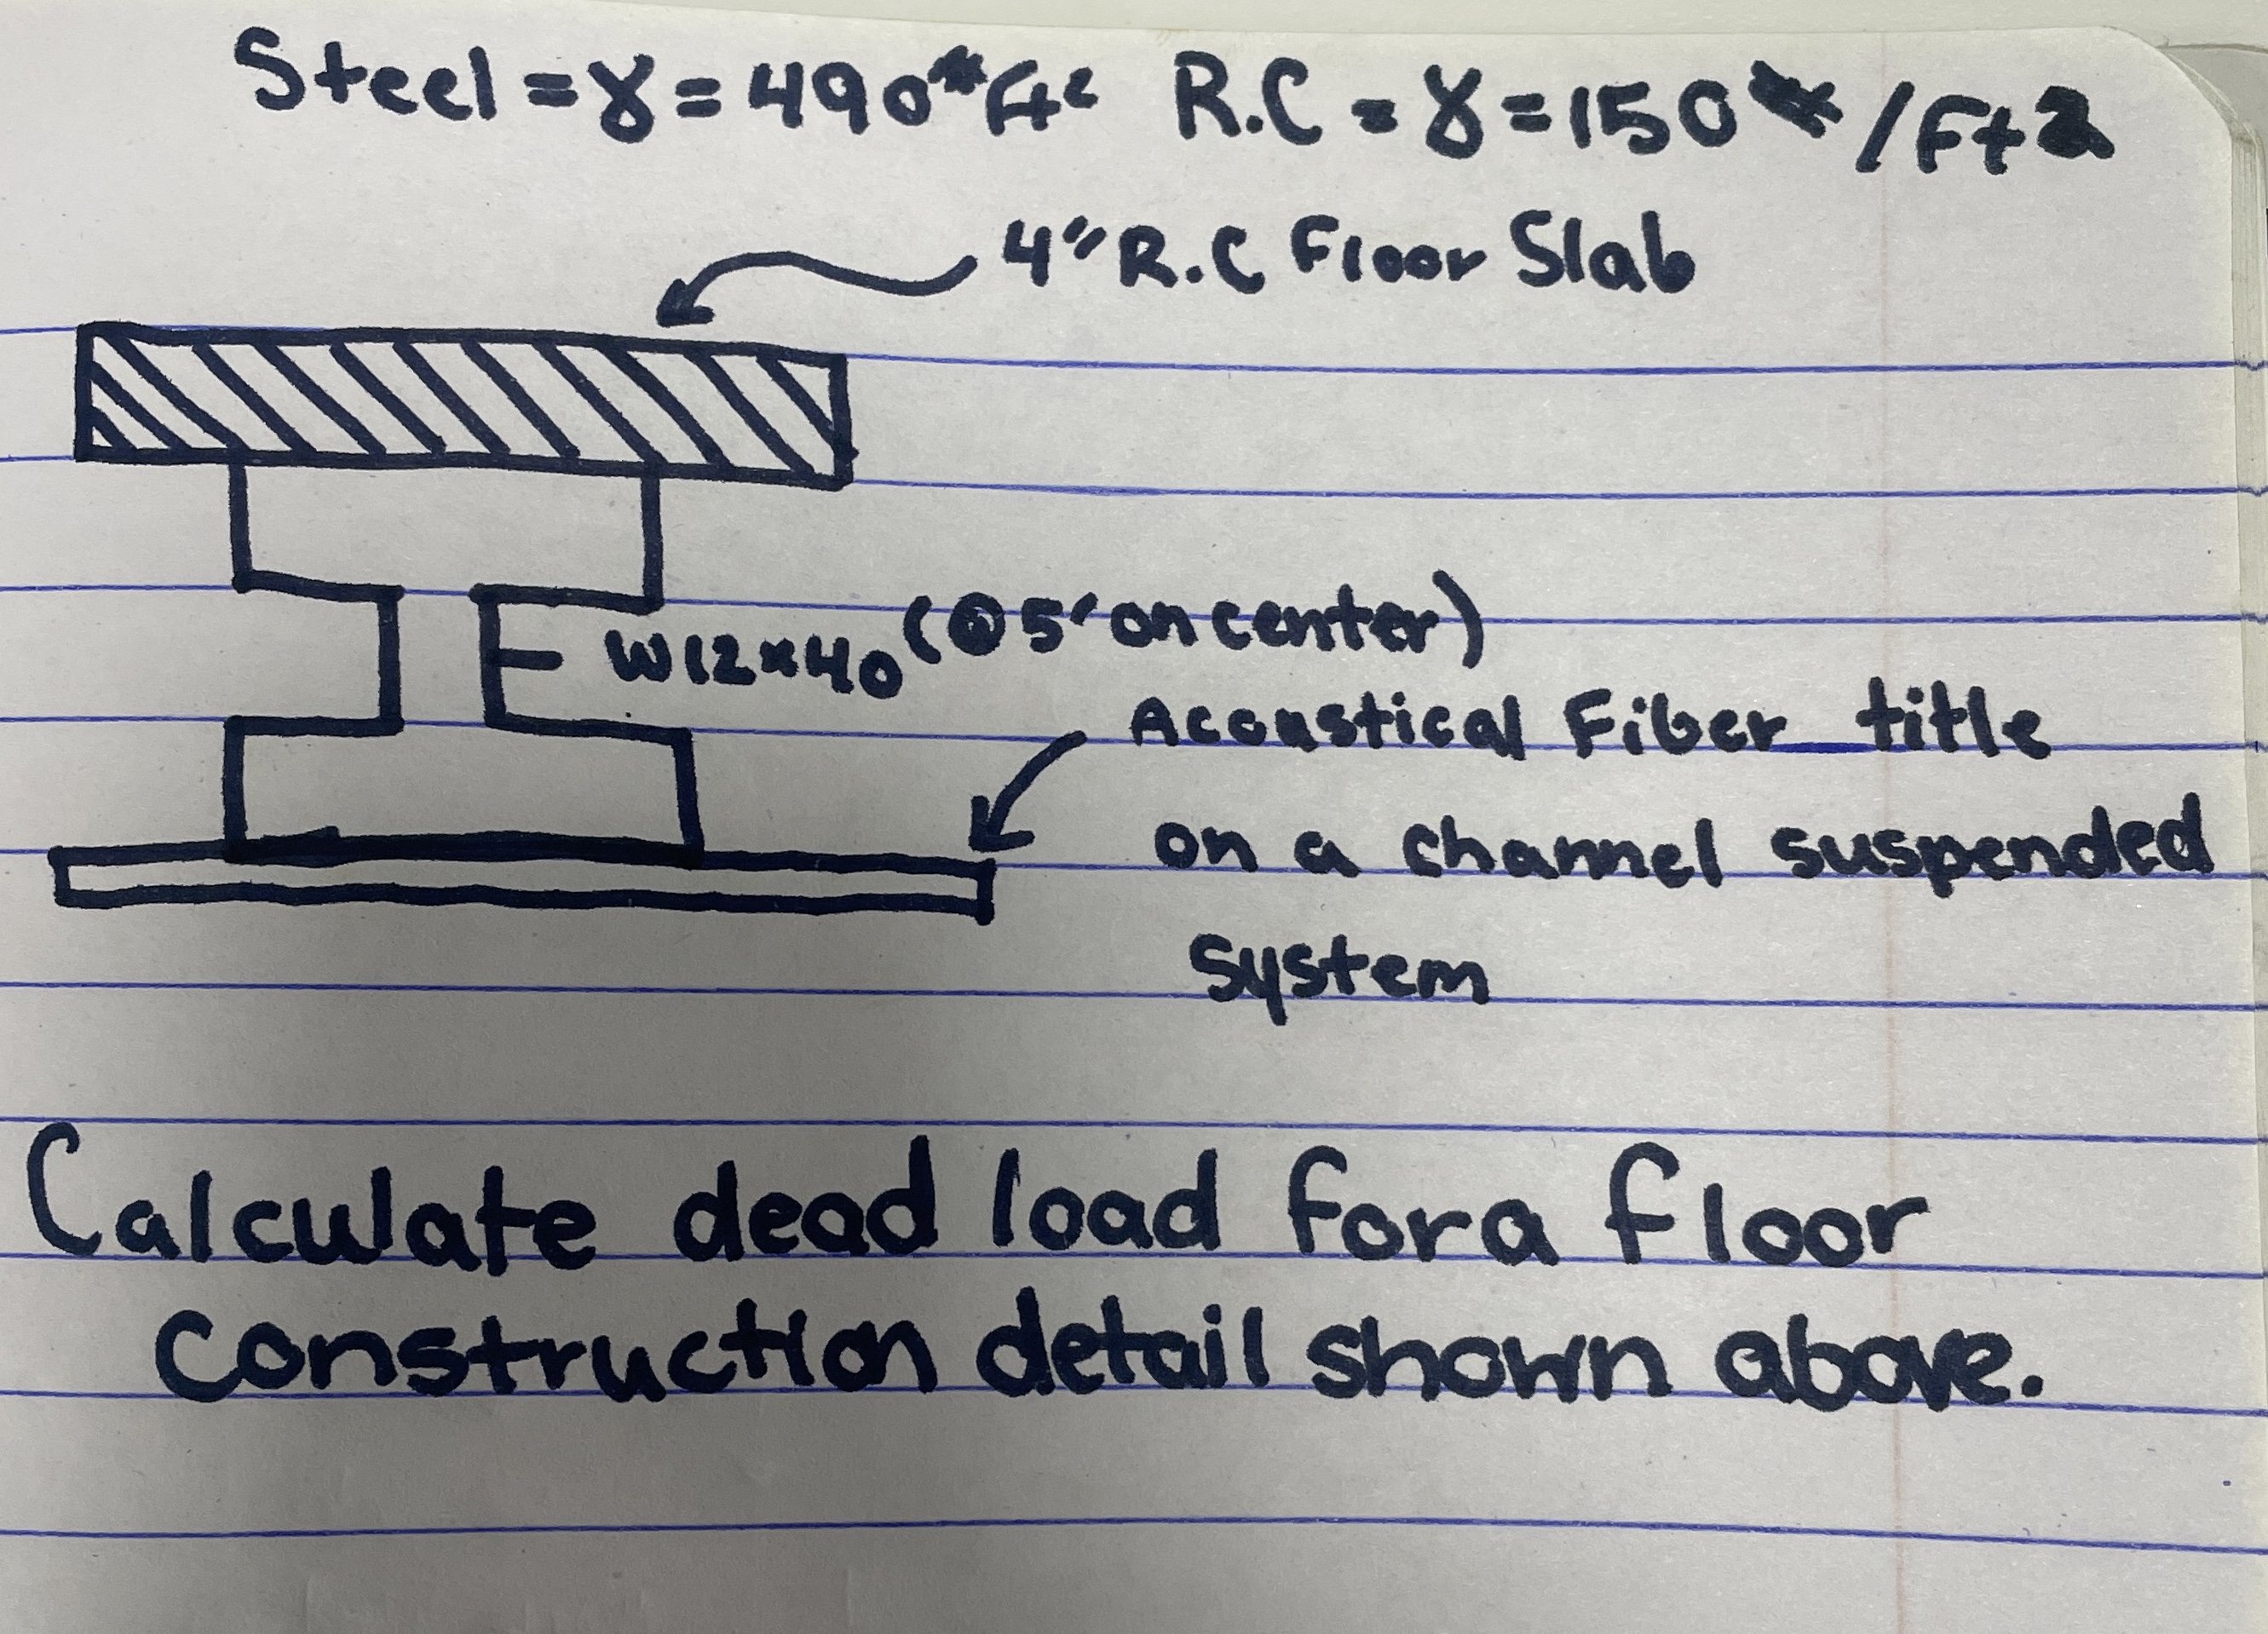 Steel = γ = 490# ft² R.C = γ = 150# /Ft2
4" R.C Floor Slab
W12x40 (@ 5' on center)
Acoustical Fiber title
on a channel suspended
system
Calculate dead load for a floor
construction detail shown above.